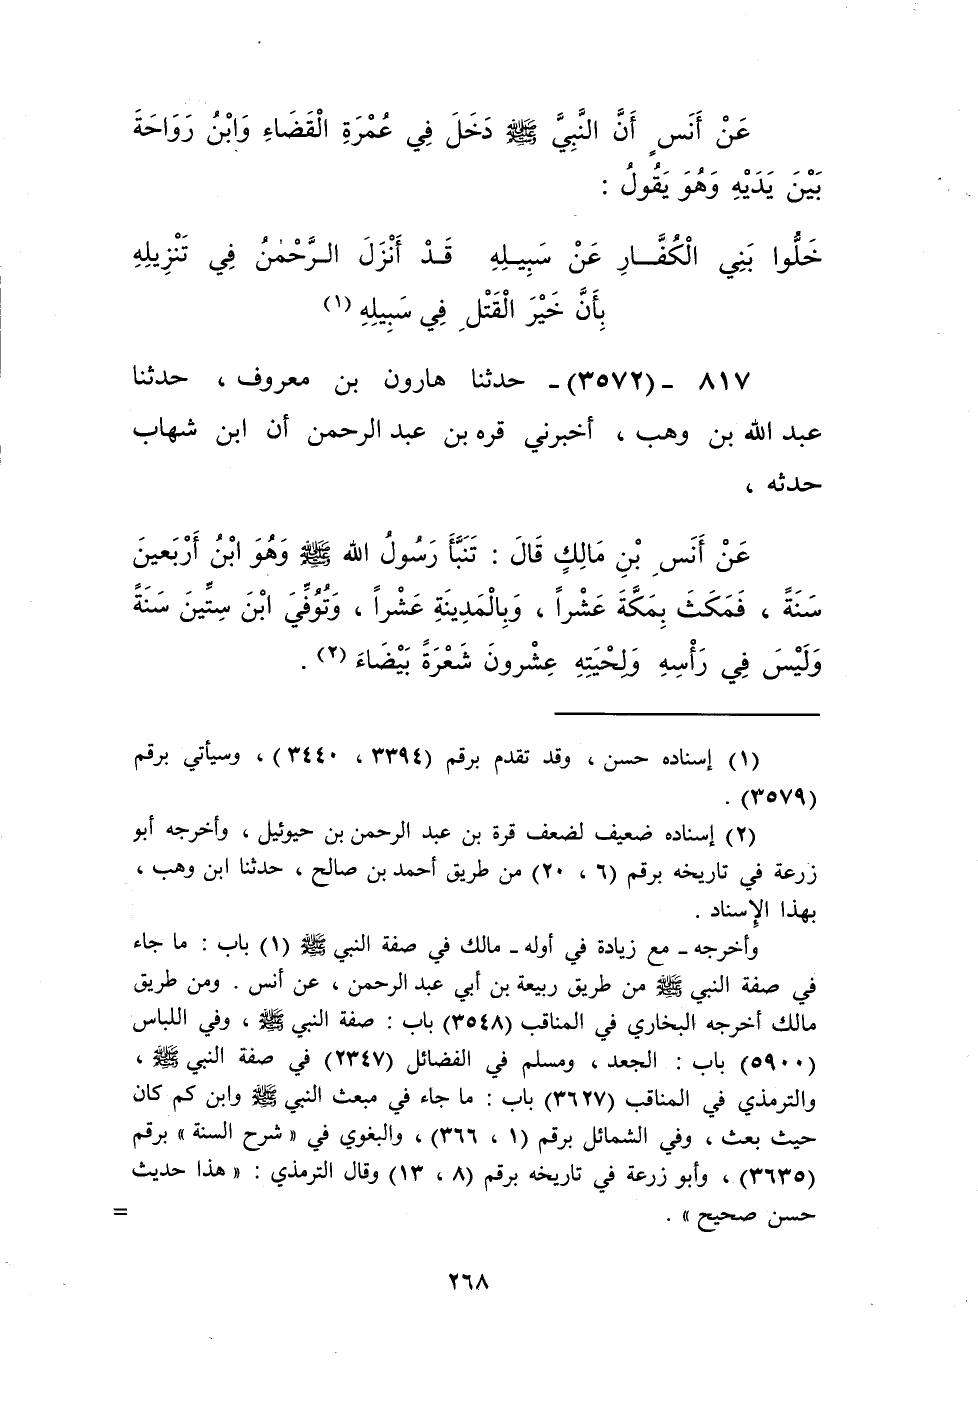 عَنْ أَنَسٍ أَنَّ النَّبِيَّ ﷺ دَخَلَ فِي عُمْرَةِ الْقَضَاءِ وَابْنُ رَوَاحَةَ
بَيْنَ يَدَيْهِ وَهُوَ يَقُولُ :
خَلُّوا بَنِي الْكُفَّارِ عَنْ سَبِيلِهِ قَدْ أَنْزَلَ الرَّحْمٰنُ فِي تَنْزِيلِهِ
بِأَنَّ خَيْرَ الْقَتْلِ فِي سَبِيلِهِ (١)
٨١٧ - (٣٥٧٢) - حدثنا هارون بن معروف ، حدثنا
عبد الله بن وهب ، أخبرني قره بن عبد الرحمن أن ابن شهاب
حدثه ،
عَنْ أَنَسِ بْنِ مَالِكٍ قَالَ : تَنَبَّأَ رَسُولُ الله ﷺ وَهُوَ ابْنُ أَرْبَعينَ
سَنَةً ، فَمَكَثَ بِمَكَّةَ عَشْراً ، وَبِالْمَدِينَةِ عَشْراً ، وَتُوُفِّيَ ابْنَ سِتِّينَ سَنَةً
وَلَيْسَ فِي رَأْسِهِ وَلِحْيَتِهِ عِشْرونَ شَعْرَةً بَيْضَاءَ (٢) .
(١) إسناده حسن ، وقد تقدم برقم (٣٣٩٤ ، ٣٤٤٠) ، وسيأتي برقم
(٣٥٧٩) .
(٢) إسناده ضعيف لضعف قرة بن عبد الرحمن بن حيوئيل ، وأخرجه أبو
زرعة في تاريخه برقم (٦ ، ٢٠) من طريق أحمد بن صالح ، حدثنا ابن وهب ،
بهذا الإسناد .
وأخرجه - مع زيادة في أوله - مالك في صفة النبي ﷺ (١) باب : ما جاء
في صفة النبي ﷺ من طريق ربيعة بن أبي عبد الرحمن ، عن أنس . ومن طريق
مالك أخرجه البخاري في المناقب (٣٥٤٨) باب : صفة النبي ﷺ ، وفي اللباس
(٥٩٠٠) باب : الجعد ، ومسلم في الفضائل (٢٣٤٧) في صفة النبي ﷺ ،
والترمذي في المناقب (٣٦٢٧) باب : ما جاء في مبعث النبي ﷺ وابن كم كان
حيث بعث ، وفي الشمائل برقم (١ ، ٣٦٦) ، والبغوي في « شرح السنة » برقم
(٣٦٣٥) ، وأبو زرعة في تاريخه برقم (٨ ، ١٣) وقال الترمذي : « هذا حديث
حسن صحيح » . =
٢٦٨